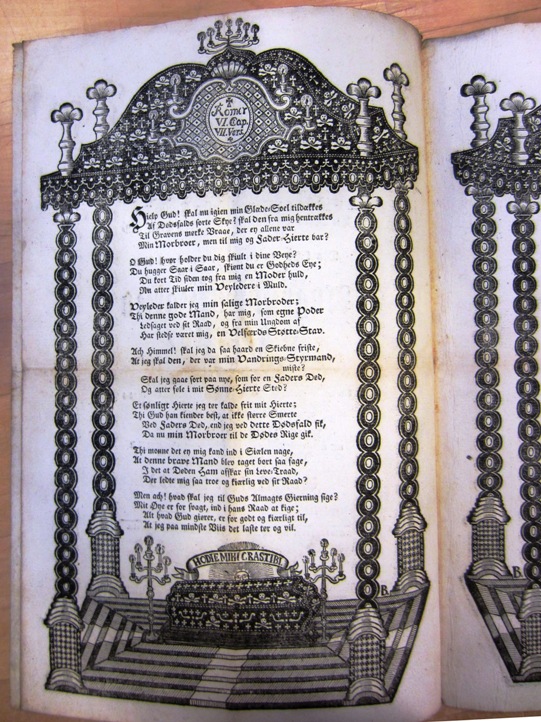 Romer
VI. Cap.
VII. Vers.
Hielp Gud! skal nu igien min Glæde-Soel tildækkes
Af Dødsfalds sorte Skye? skal den fra mig hentrækkes
Til Gravens mørke Vraae, der ey allene var
Min Morbroer, men til mig og Fader-Hierte bar?
O Gud! hvor holder du dig skiult i dine Veye?
Du hugger Saar i Saar, skiønt du er Godheds Eye;
Du kort Tid siden tog fra mig en Moder huld,
Nu atter skiuler min Veyledere i Muld.
Veyleder kalder jeg min salige Morbroder;
Thi denne gode Mand, har mig, som egne Poder
Ledsaget ved sit Raad, og fra min Ungdom af
Har stedse været mig, en Velfærds Støtte-Stav.
Ach Himmel! skal jeg da saa haard en Skiebne friste,
At jeg skal den, der var min Vandrings-Styrmand,
miste?
Skal jeg gaae sort paa nye, som for en Faders Død,
Og atter føle i mit Sønne-Hierte Stød?
Et sønligt Hierte jeg tør kalde frit mit Hierte;
Thi Gud han kiender best, at ikke større Smerte
Ved Faders Død, end jeg ved dette Dødsfald fik,
Da nu min Morbroer til de Dødes Rige gik.
Thi monne det ey mig kand ind i Sielen nage,
At denne brave Mand blev taget bort saa fage,
I det at Døden Ham afskar sin Leve-Traad,
Der ledte mig saa troe og kiærlig ved sit Raad?
Men ach! hvad skal jeg til Guds Almagts Gierning sige?
Mit Øye er for svagt, ind i hans Raad at kige;
Alt hvad Gud giører, er for godt og kiærligt til,
At jeg paa mindste Viis det laste tør og vil.
HODIE MIHI CRASTIBI